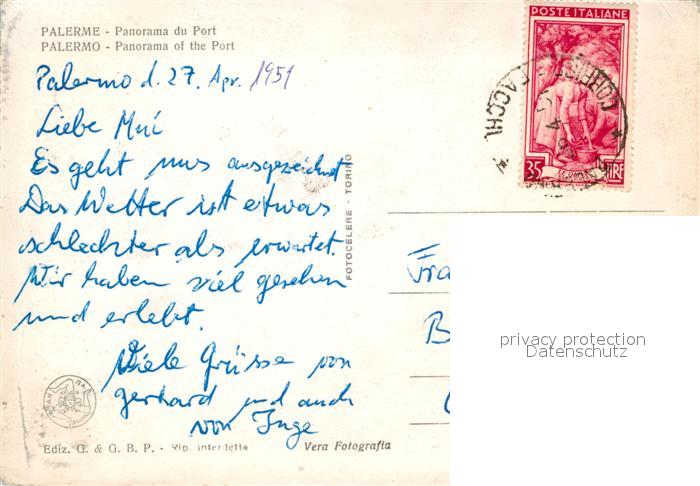 PALERME - Panorama du Port
PALERMO - Panorama of the Port
Palermo d. 27. Apr. 1951
Liebe Mui
Es geht uns ausgezeichnet
Das Wetter ist etwas
schlechter als erwartet.
Wir haben viel gesehen
und erlebt.
Viele Grüsse von
gerhard und auch
von Inge
Ediz. G. & G. B. P. - Rip. interdetta
Vera Fotografia
FOTOCELERE - TORINO
POSTE ITALIANE
35 LIRE
CORRISP. PACCHI
Fra
B
privacy protection
Datenschutz